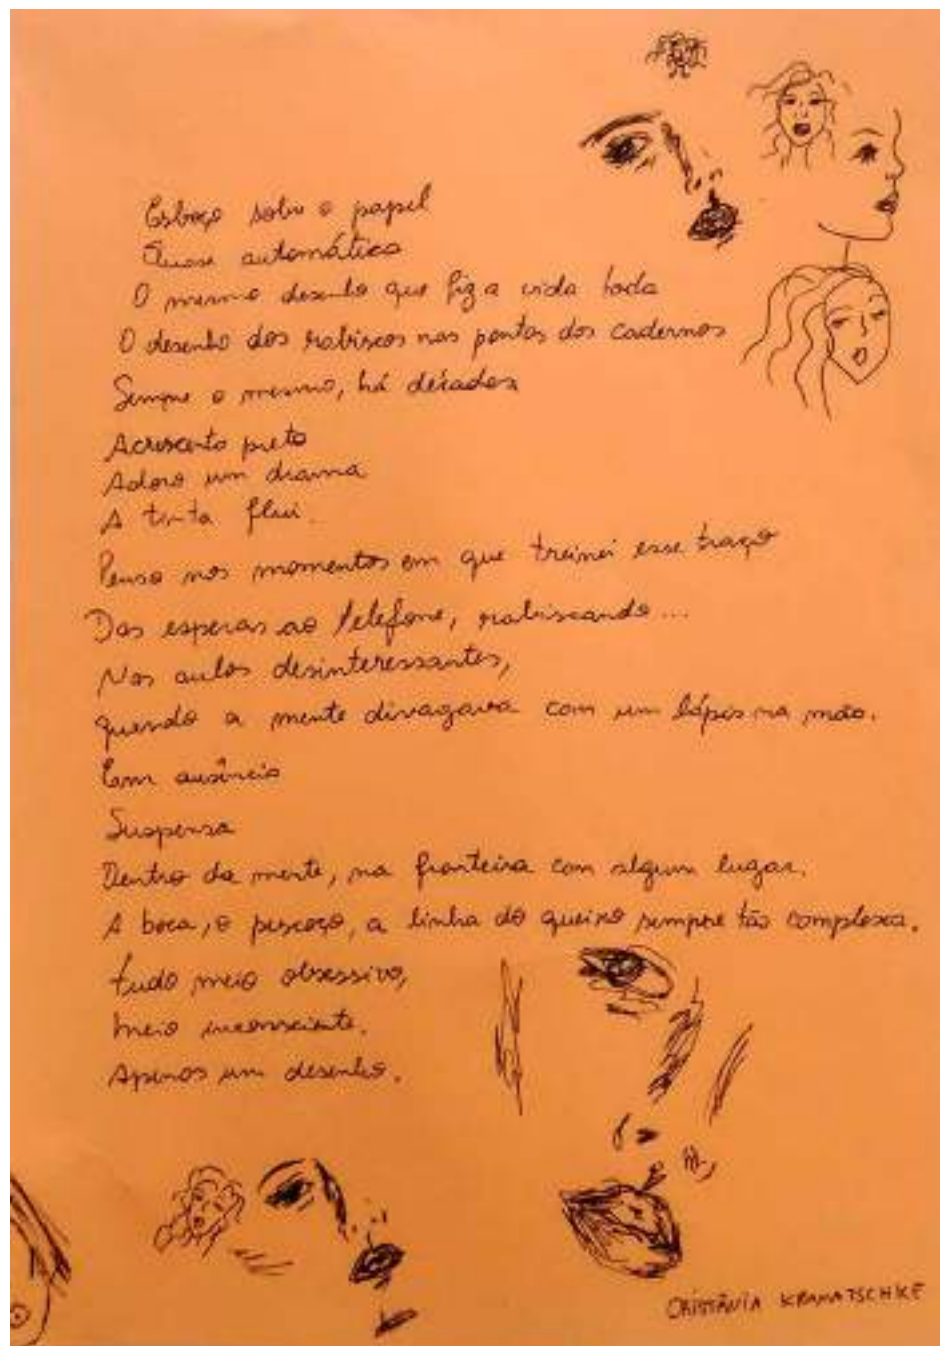 Esboço sobre o papel
Quase automático
O mesmo desenho que fiz a vida toda
O desenho dos rabiscos nas pontas dos cadernos
Sempre o mesmo, há décadas
Acrescento preto
Adoro um drama
A tinta flui.
Penso nos momentos em que treinei esse traço
Das esperas ao telefone, rabiscando...
Nas aulas desinteressantes,
quando a mente divagava com um lápis na mão.
Em ausência
Suspensa
Dentro da mente, na fronteira com algum lugar.
A boca, o pescoço, a linha do queixo sempre tão complexa.
tudo meio obsessivo,
meio inconsciente.
Apenas um desenho.
CRISTÂNIA KRAMATSCHKE